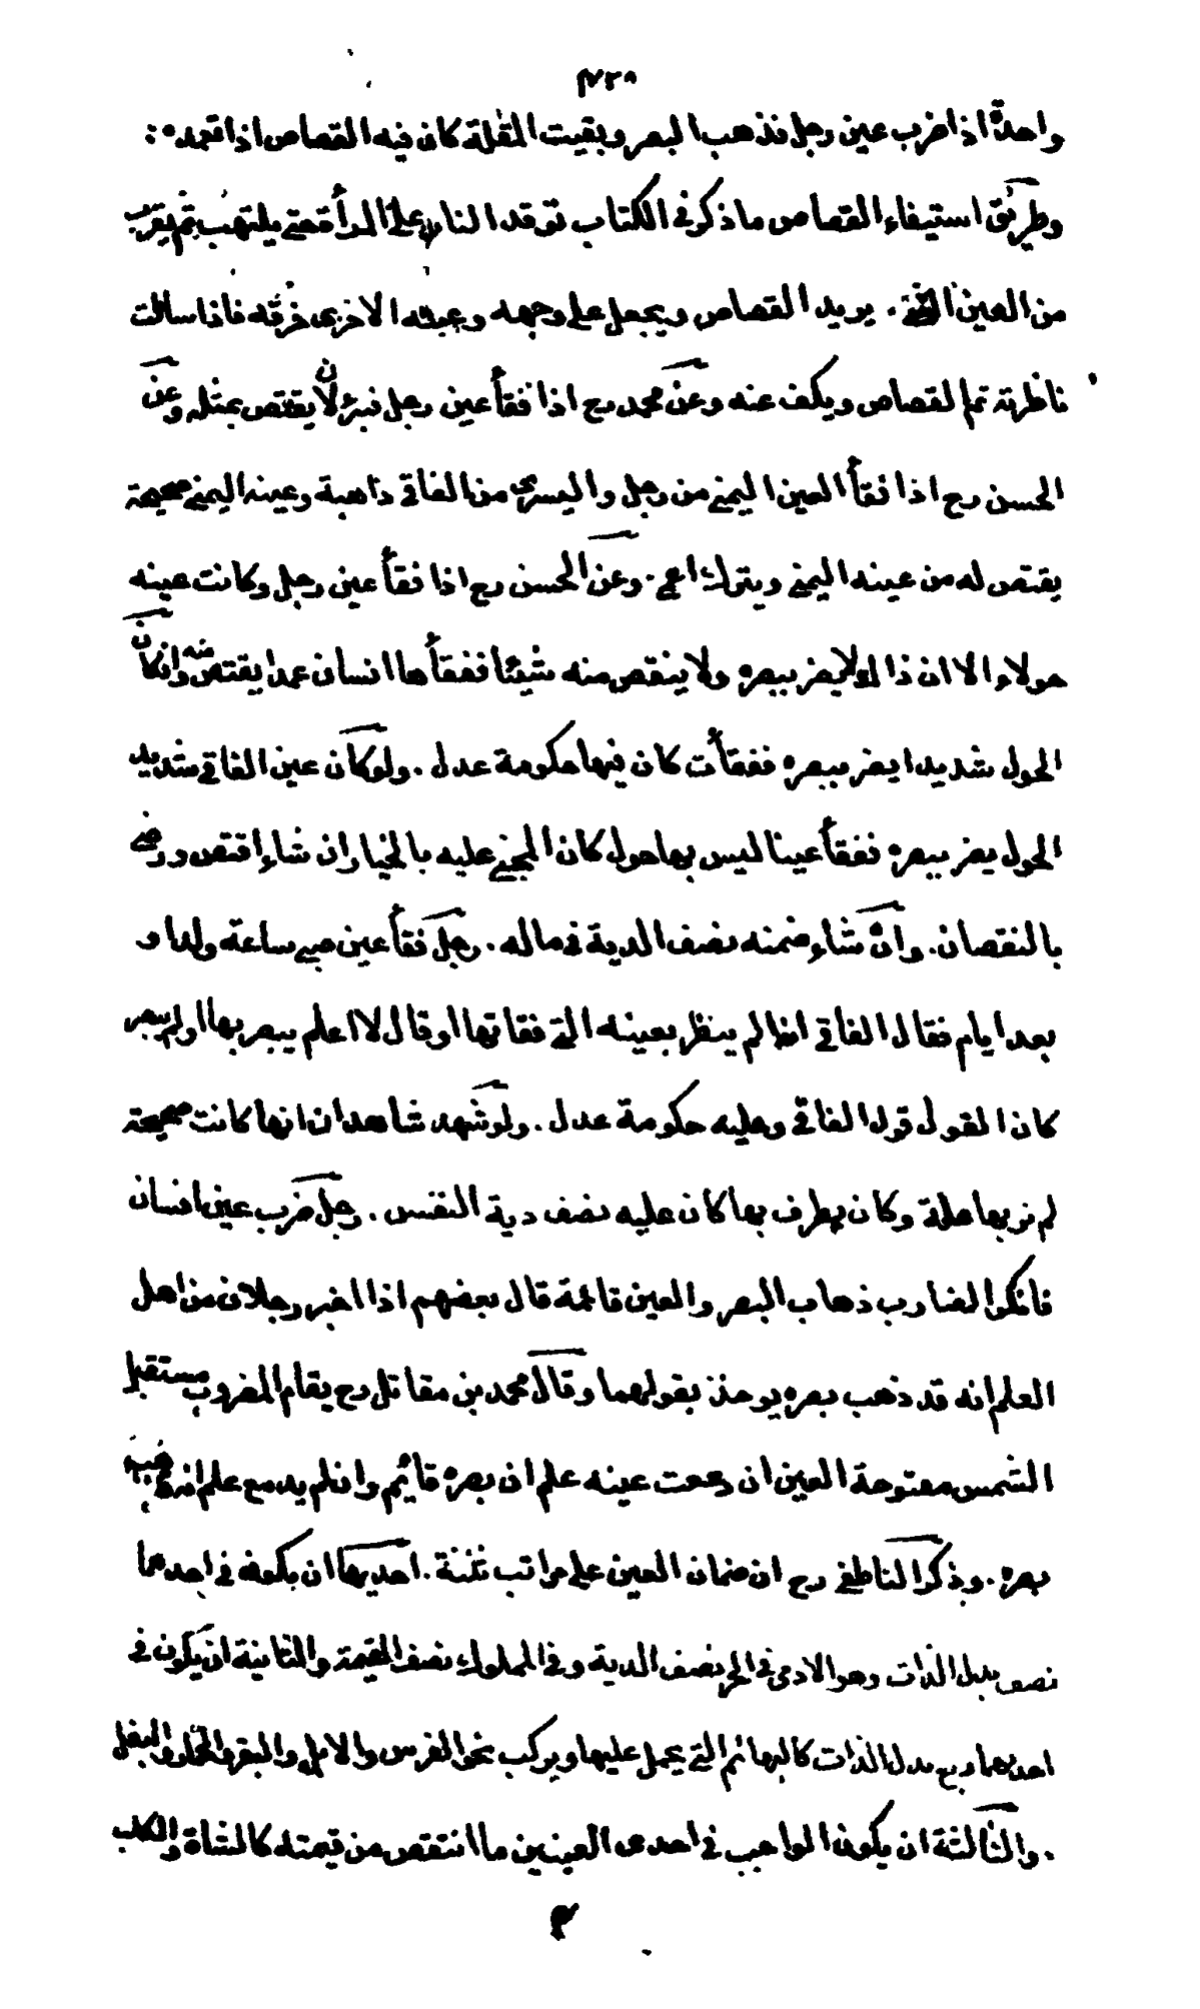 ٤٢٨
واحدة اذا ضرب عين رجل فذهب البصر وبقيت المقلة كان فيه القصاص اذا تعمده :
وطريق استيفاء القصاص ما ذكر في الكتاب توقد النار على المرأة حتى يلتهب ثم يقرب
من العين التي . يريد القصاص ويجعل على وجهه وعينه الاخرى خرقه فاذا سالت
ناظرته تم القصاص ويكف عنه وعن محمد رح اذا فقأ عين رجل فبرئ لا يقتص بمثله وعن
الحسن رح اذا فقأ العين اليمنى من رجل واليسرى من الفاقئ ذاهبة وعينه اليمنى صحيحة
يقتص له من عينه اليمنى ويترك اعمى . وعن الحسن رح اذا فقأ عين رجل وكانت عينه
حولاء الا ان ذا لا يضر ببصره ولا ينقص منه شيئا ففقأها انسان عمدا يقتص منه وان كان
الحول شديدا يضر ببصره ففقأت كان فيها حكومة عدل . ولو كان عين الفاقئ شديد
الحول يضر ببصره ففقأ عينا ليس بها حول كان المجنى عليه بالخيار ان شاء اقتص ورضى
بالنقصان . وان شاء ضمنه نصف الدية في ماله . رجل فقأ عين صبي ساعة ولد او
بعد ايام فقال الفاقئ انه لم ينظر بعينه التي فقاتها او قال لا اعلم يبصر بها او لم يبصر
كان القول قول الفاقئ وعليه حكومة عدل . ولو شهد شاهدان انها كانت صحيحة
لم نر بها علة وكان يطرف بها كان عليه نصف دية النفس . رجل ضرب عين انسان
فانكر الضارب ذهاب البصر والعين قائمة قال بعضهم اذا اخبر رجلان من اهل
العلم انه قد ذهب بصره يوخذ بقولهما وقال محمد بن مقاتل رح يقام المضروب مستقبل
الشمس مفتوحة العين ان دمعت عينه علم ان بصره قائم وان لم يدمع علم انه ذهب
بصره . وذكر الناطفى رح ان ضمان العين على مراتب ثلثة . احديها ان يكون في احدهما
نصف بدل الذات وهو الادمى في الحر نصف الدية وفي المملوك نصف القيمة والثانية ان يكون في
احدهما ربع بدل الذات كالبهائم التي يحمل عليها ويركب نحو الفرس والابل والبقر والحمار والبغل
. والثالثة ان يكون الواجب في احدى العينين ما انتقص من قيمته كالشاة والكلب